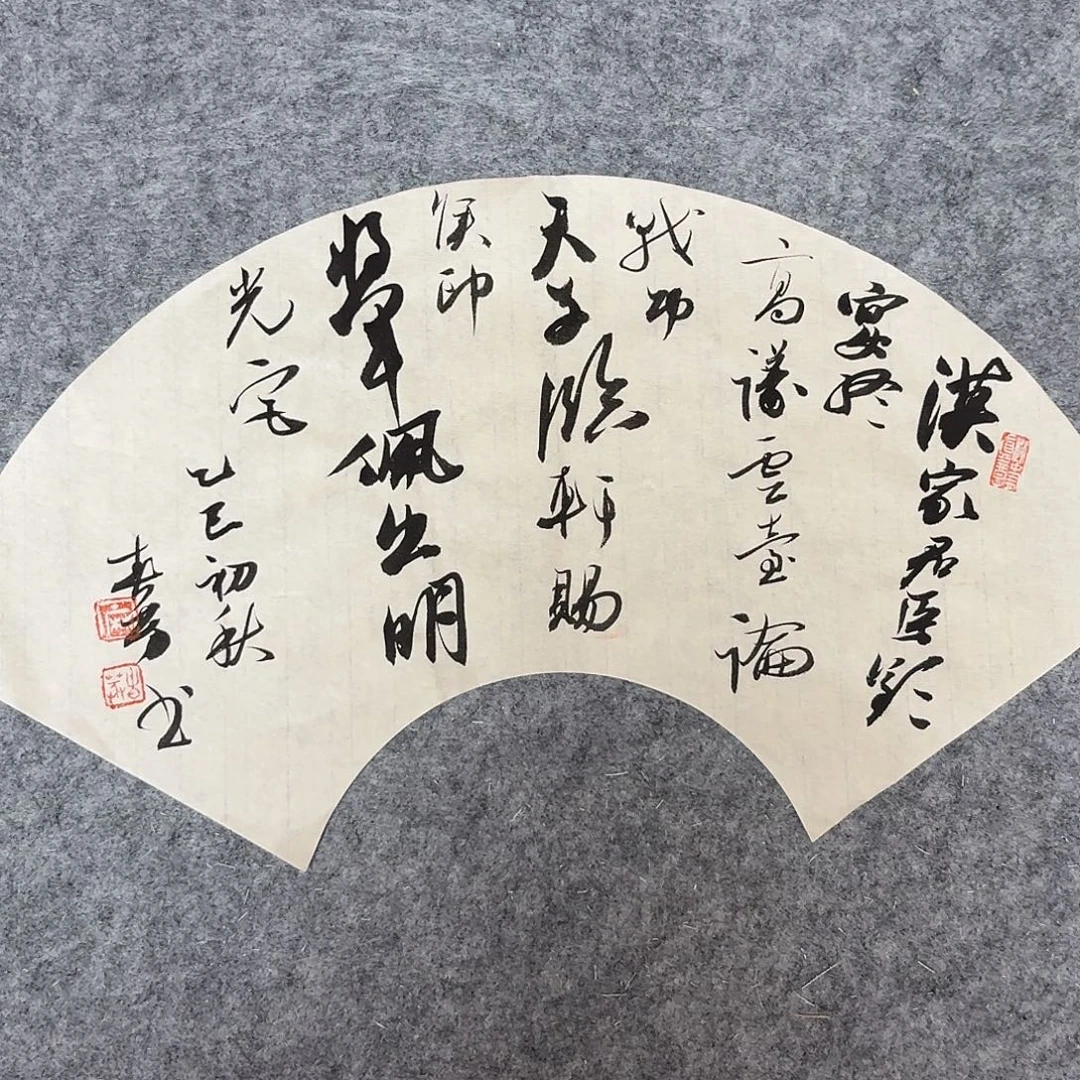 漢家君臣歡
宴終
高議雲臺論
戰功
天子臨軒賜
侯印
將軍佩出明
光宮
乙巳初秋
書